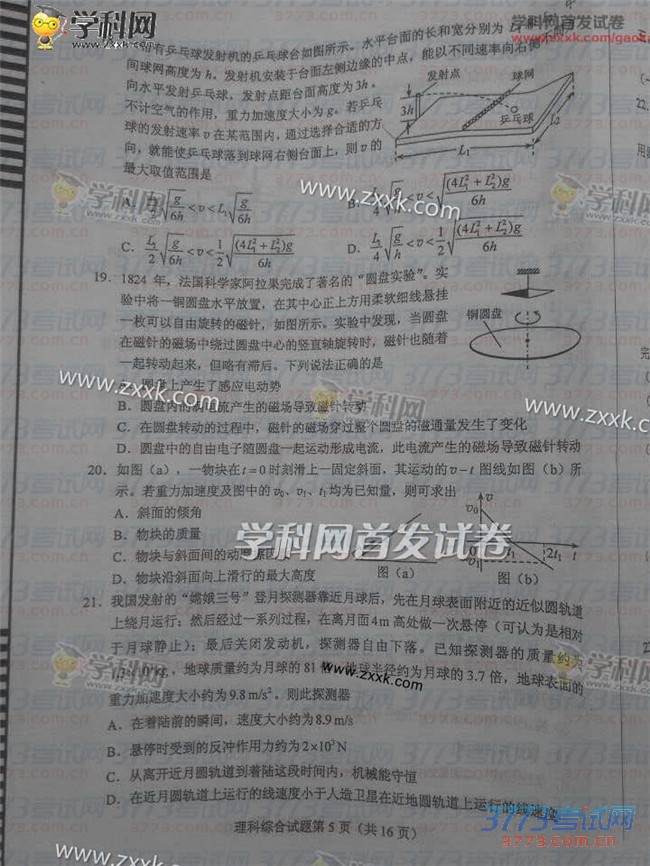 学科网
www.zxxk.com
学科网首发试卷
www.zxxk.com/gaok
有乒乓球发射机的乒乓球台如图所示。水平台面的长和宽分别为
间球网高度为 h。发射机安装于台面左侧边缘的中点，能以不同速率向右侧
向水平发射乒乓球，发射点距台面高度为 3h。
不计空气的作用，重力加速度大小为 g。若乒乓
球的发射速率 v 在某范围内，通过选择合适的方
向，就能使乒乓球落到球网右侧台面上，则 v 的
最大取值范围是
发射点 球网
3h 乒乓球
L₁ L₂
A. L₁/2 √(g/6h) < v < L₁√(g/6h)
B. L₁/4 √(g/h) < v < √((4L₁²+L₂²)g/6h)
C. L₁/2 √(g/6h) < v < 1/2 √((4L₁²+L₂²)g/6h)
D. L₁/4 √(g/h) < v < 1/2 √((4L₁²+L₂²)g/6h)
19. 1824 年，法国科学家阿拉果完成了著名的“圆盘实验”。实
验中将一铜圆盘水平放置，在其中心正上方用柔软细线悬挂
一枚可以自由旋转的磁针，如图所示。实验中发现，当圆盘
在磁针的磁场中绕过圆盘中心的竖直轴旋转时，磁针也随着
一起转动起来，但略有滞后。下列说法正确的是
铜圆盘
圆盘上产生了感应电动势
B. 圆盘内的涡电流产生的磁场导致磁针转动
C. 在圆盘转动的过程中，磁针的磁场穿过整个圆盘的磁通量发生了变化
D. 圆盘中的自由电子随圆盘一起运动形成电流，此电流产生的磁场导致磁针转动
20. 如图（a），一物块在 t=0 时刻滑上一固定斜面，其运动的 v-t 图线如图（b）所
示。若重力加速度及图中的 v₀、v₁、t₁ 均为已知量，则可求出
A. 斜面的倾角
B. 物块的质量
C. 物块与斜面间的动摩擦因数
D. 物块沿斜面向上滑行的最大高度
图（a）
v
v₀
t₁ 2t₁ t
图（b）
学科网首发试卷
21. 我国发射的“嫦娥三号”登月探测器靠近月球后，先在月球表面附近的近似圆轨道
上绕月运行；然后经过一系列过程，在离月面 4m 高处做一次悬停（可认为是相对
于月球静止）；最后关闭发动机，探测器自由下落。已知探测器的质量约为
1.3×10³kg，地球质量约为月球的 81 倍，地球半径约为月球的 3.7 倍，地球表面的
重力加速度大小约为 9.8 m/s²。则此探测器
A. 在着陆前的瞬间，速度大小约为 8.9 m/s
B. 悬停时受到的反冲作用力约为 2×10³N
C. 从离开近月圆轨道到着陆这段时间内，机械能守恒
D. 在近月圆轨道上运行的线速度小于人造卫星在近地圆轨道上运行的线速度
理科综合试题第 5 页（共 16 页）
3773考试网
www.3773.com.cn